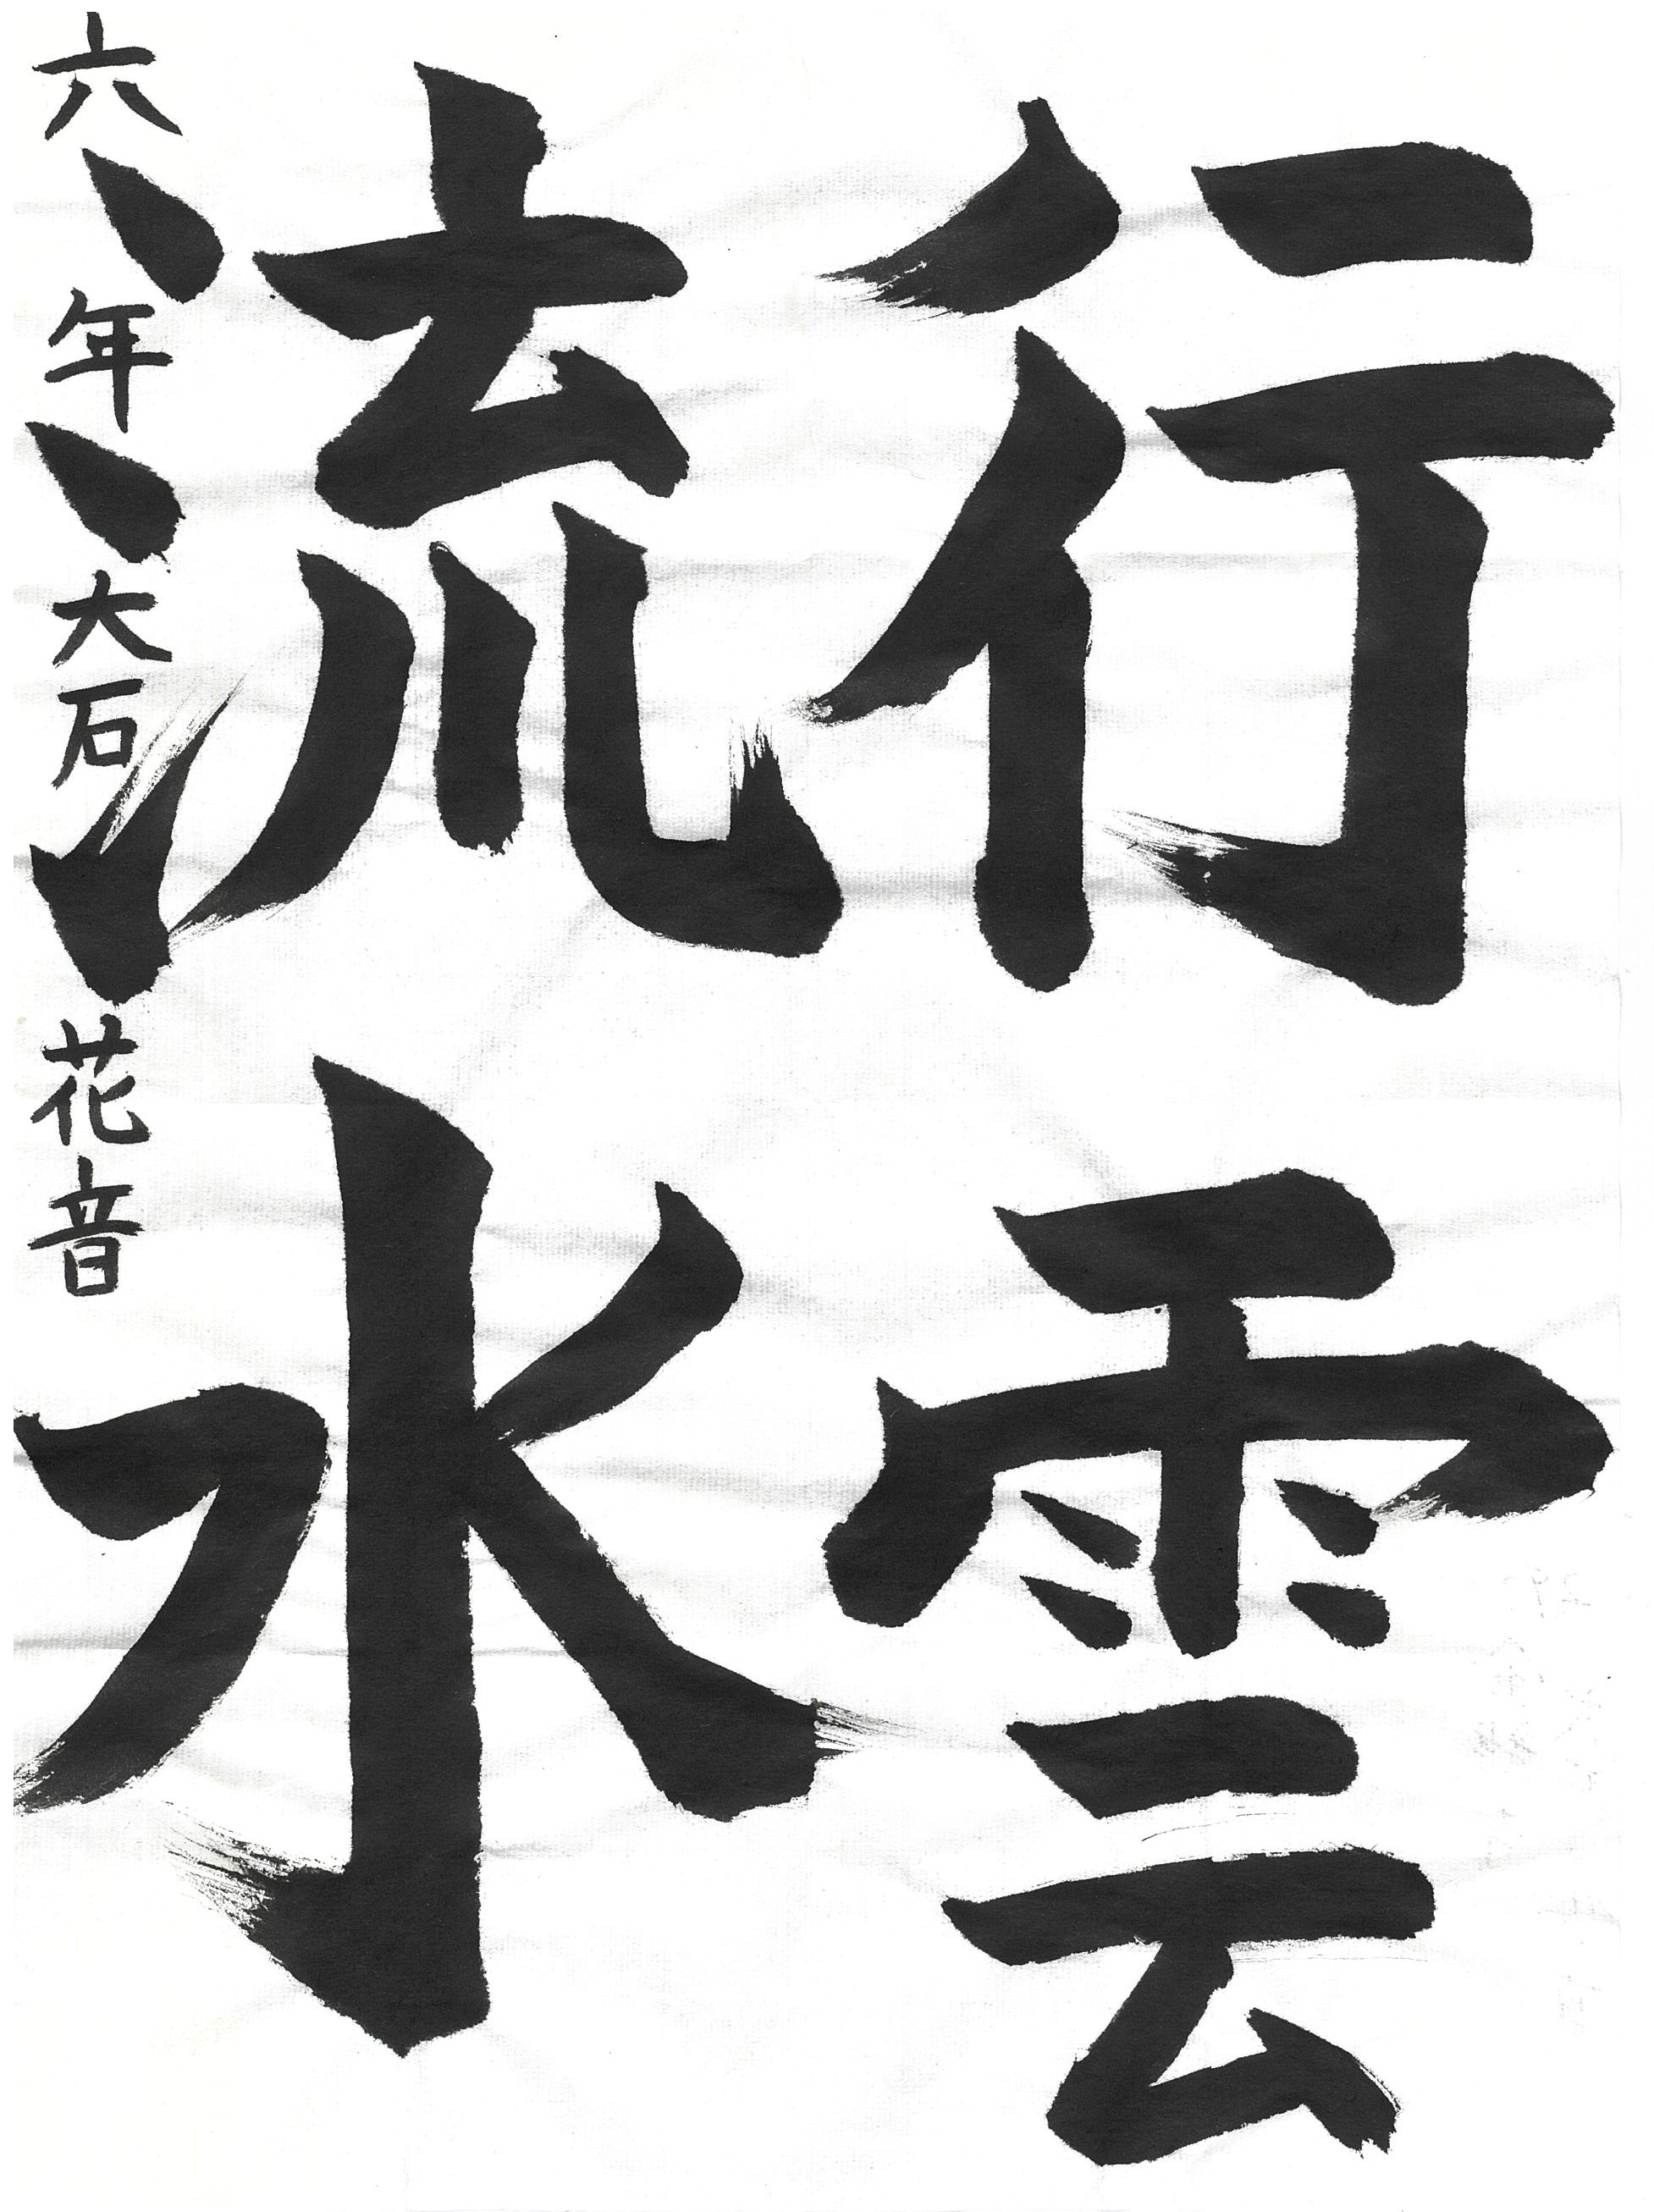 行雲
流水
六年大石花音